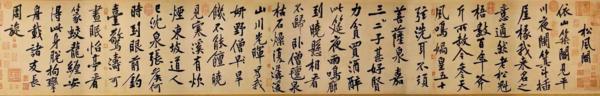 松風閣
依山築閣見平
川夜闌箕斗插
屋椽我來名之
意適然老松魁
梧數百年斧
斤所赦今參天
風鳴媧皇五十
弦洗耳不須
菩薩泉嘉二
三子甚好賢
力貧買酒醉
此筵夜雨鳴廊
到曉懸相看
不歸臥僧氈泉
枯石燥復潺湲
山川光暉為我
妍野僧早
飢不能饘曉
見寒溪有炊
煙東坡道人
已沈泉張侯何
時到眼前釣
臺驚濤可
晝眠怡亭看
篆蛟龍纏安
得此身脫拘攣
舟載諸友長
周旋